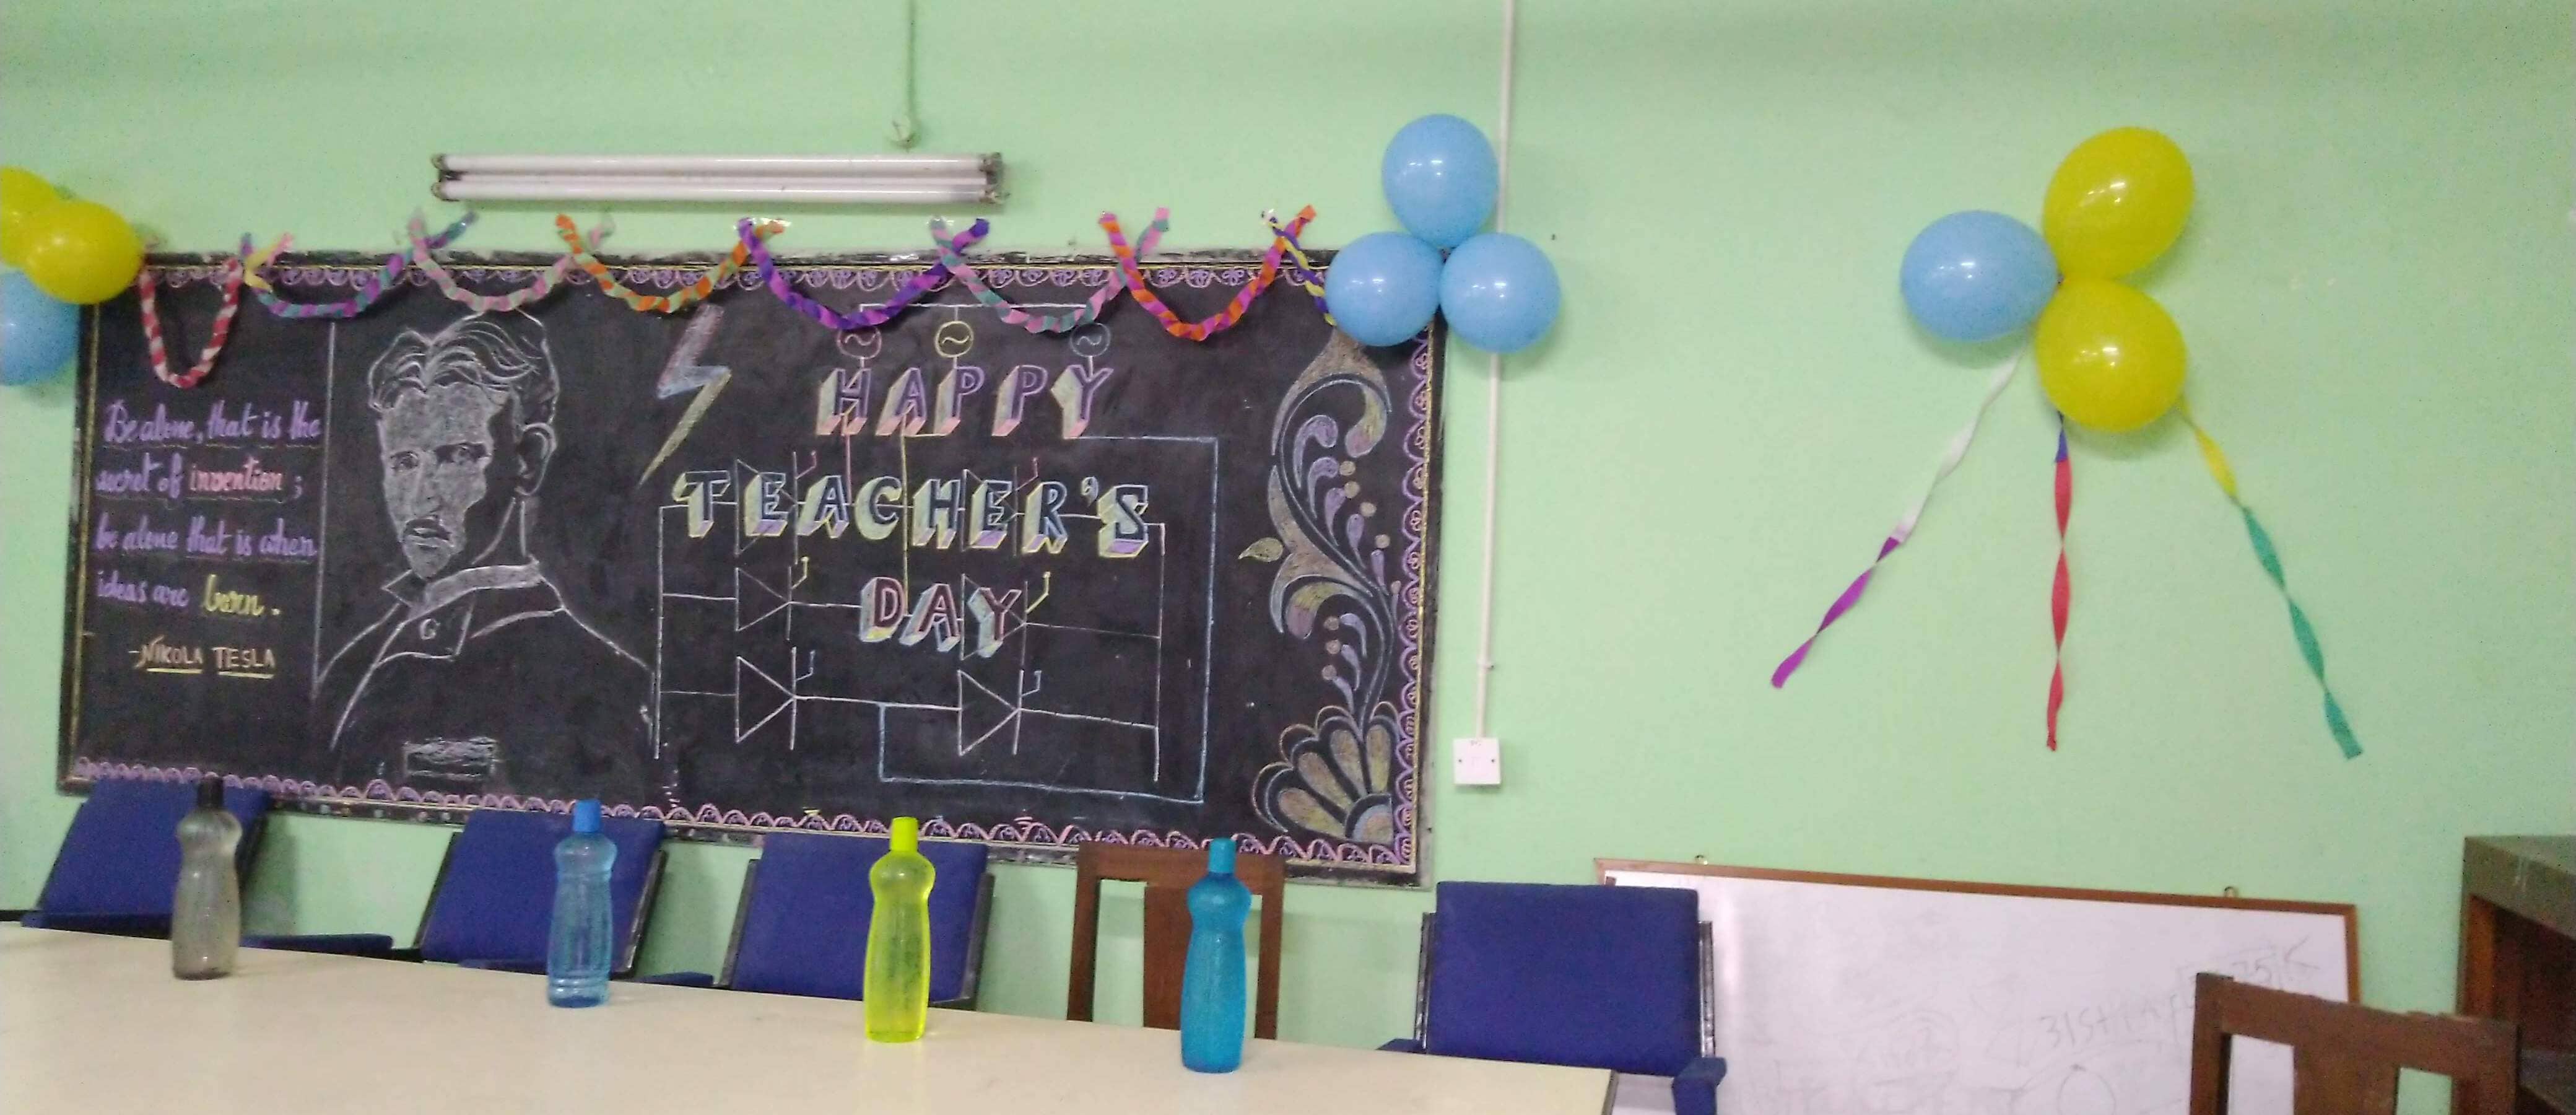 Be alone, that is the
secret of invention;
be alone that is when
ideas are born.
-NIKOLA TESLA
HAPPY
TEACHER'S
DAY